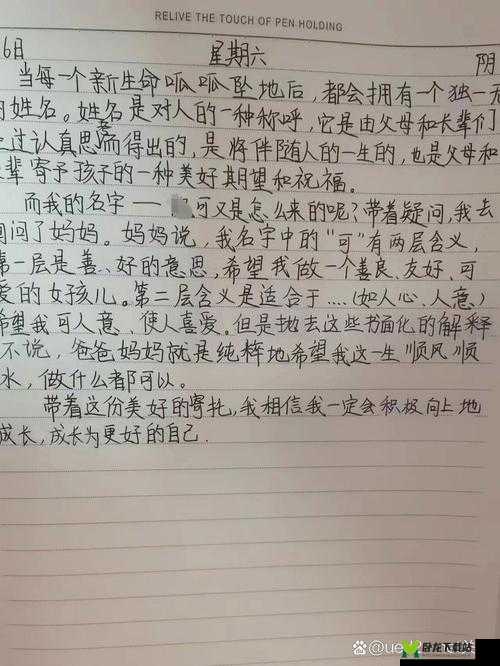 RELIVE THE TOUCH OF PEN HOLDING
6日 星期六 阴
当每一个新生命呱呱坠地后，都会拥有一个独一无
的姓名。姓名是对人的一种称呼，它是由父母和长辈们
过认真思索而得出的，是将伴随人的一生的，也是父母和
辈寄予孩子的一种美好期望和祝福。
而我的名字——可又是怎么来的呢？带着疑问，我去
问了妈妈。妈妈说，我名字中的"可"有两层含义，
第一层是善、好的意思，希望我做一个善良、友好、可
爱的女孩儿。第二层含义是适合于....（如人心、人意）
希望我可人意、使人喜爱。但是抛去这些书面化的解释
不说，爸爸妈妈就是纯粹地希望我这一生顺风顺
水，做什么都可以。
带着这份美好的寄托，我相信我一定会积极向上地
成长，成长为更好的自己.
卧龙下载站